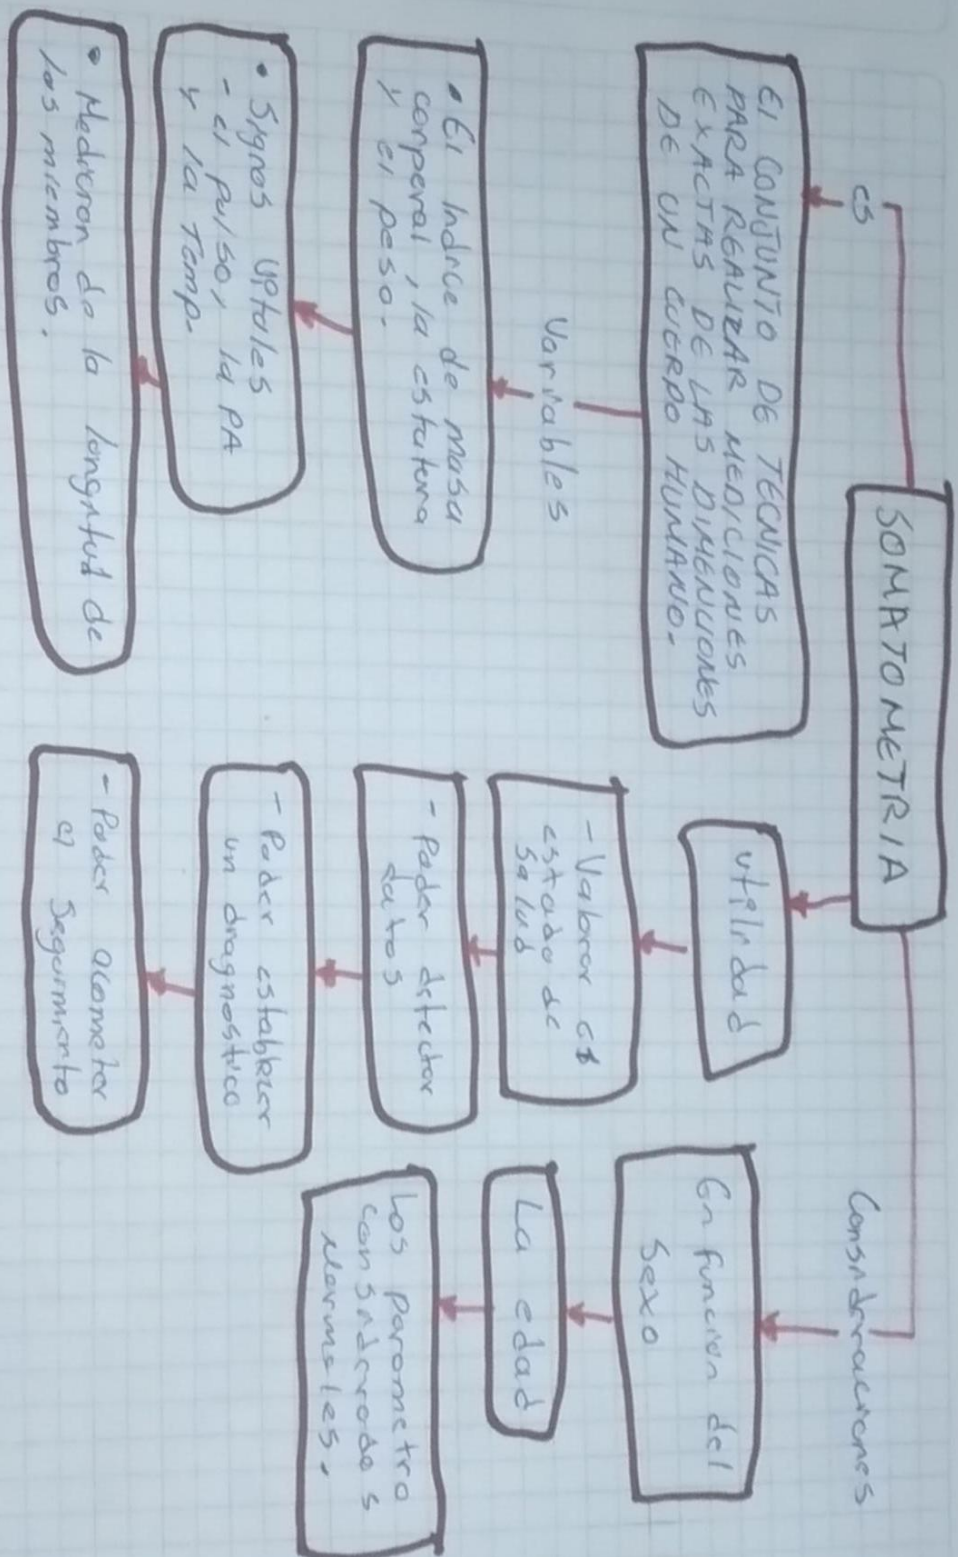 SOMATOMETRIA
es
El CONJUNTO DE TECNICAS
PARA REALIZAR MEDICIONES
EXACTAS DE LAS DIMENCIONES
DE UN CUERPO HUMANO.
Variables
• El Indice de masa
corporal, la estatura
y el peso.
• Signos Vitales
- el pulso, la PA
y la Temp.
• Medicion de la longitud de
los miembros.
utilidad
- Valorar el
estado de
salud
- Poder detectar
datos
- Poder establecer
un diagnostico
- Poder acometer
el seguimiento
Consideraciones
En funcion del
Sexo
La edad
Los parametro
considerados
Normales.